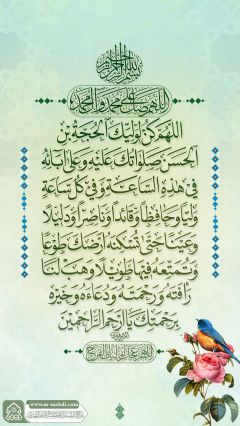 بسم الله الرحمن الرحيم
اللهم صل على محمد وآل محمد
اللّهُمَّ كُنْ لِوَلِيِّكَ الْحُجَّةِ بْنِ
الْحَسَنِ صَلَواتُكَ عَلَيْهِ وَعَلى آبائِهِ
في هذِهِ السَّاعَةِ وَفي كُلِّ ساعَةٍ
وَلِيّاً وَحافِظاً وَقائِداً وَناصِراً وَدَليلاً
وَعَيْناً حَتّى تُسْكِنَهُ أَرْضَكَ طَوْعاً
وَتُمَتِّعَهُ فيها طَويلاً وَهَبْ لَنا
رَأْفَتَهُ وَرَحْمَتَهُ وَدُعاءَهُ وَخَيْرَهُ
بِرَحْمَتِكَ يا أَرْحَمَ الرَّاحِمينَ
اللهم عجل لوليك الفرج
www.m-mahdi.com